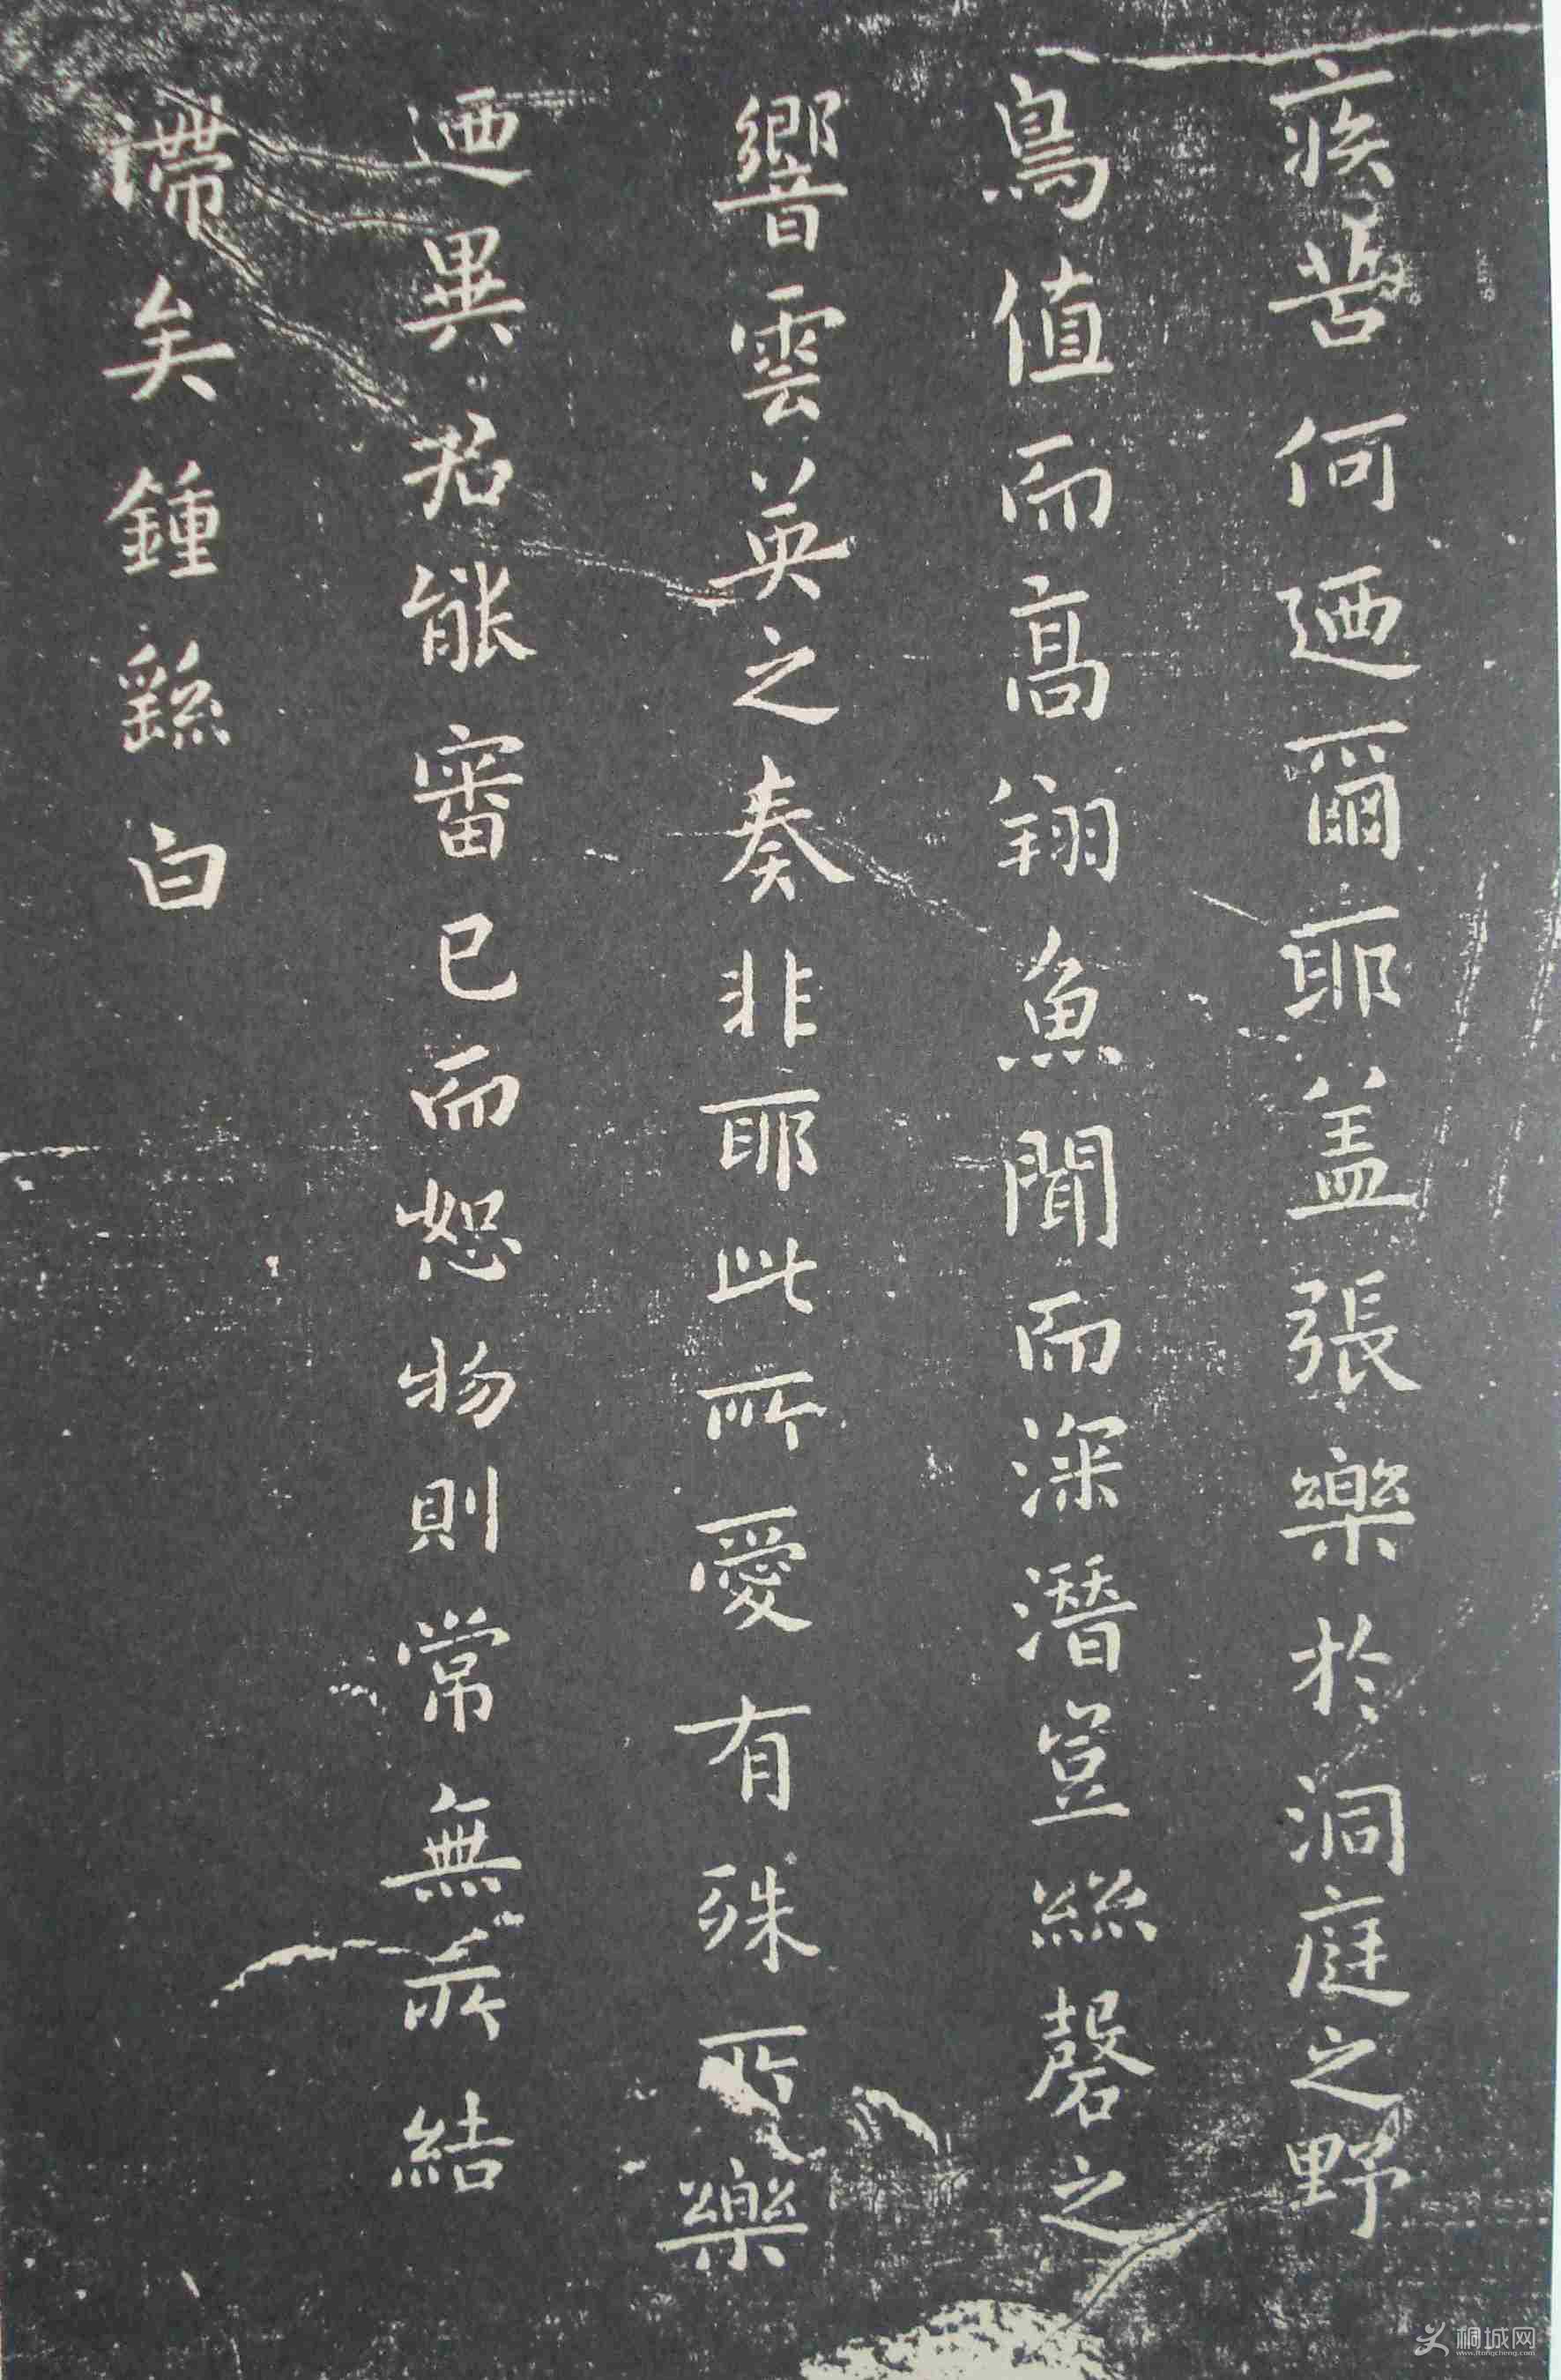 疾苦何迺爾耶盖張樂於洞庭之野
鳥值而高翔魚聞而深潛豈絲磬之
響雲英之奏非耶此所愛有殊所樂
迺異君能審己而恕物則常無所結
滞矣鍾繇白
桐城网
www.itongcheng.com